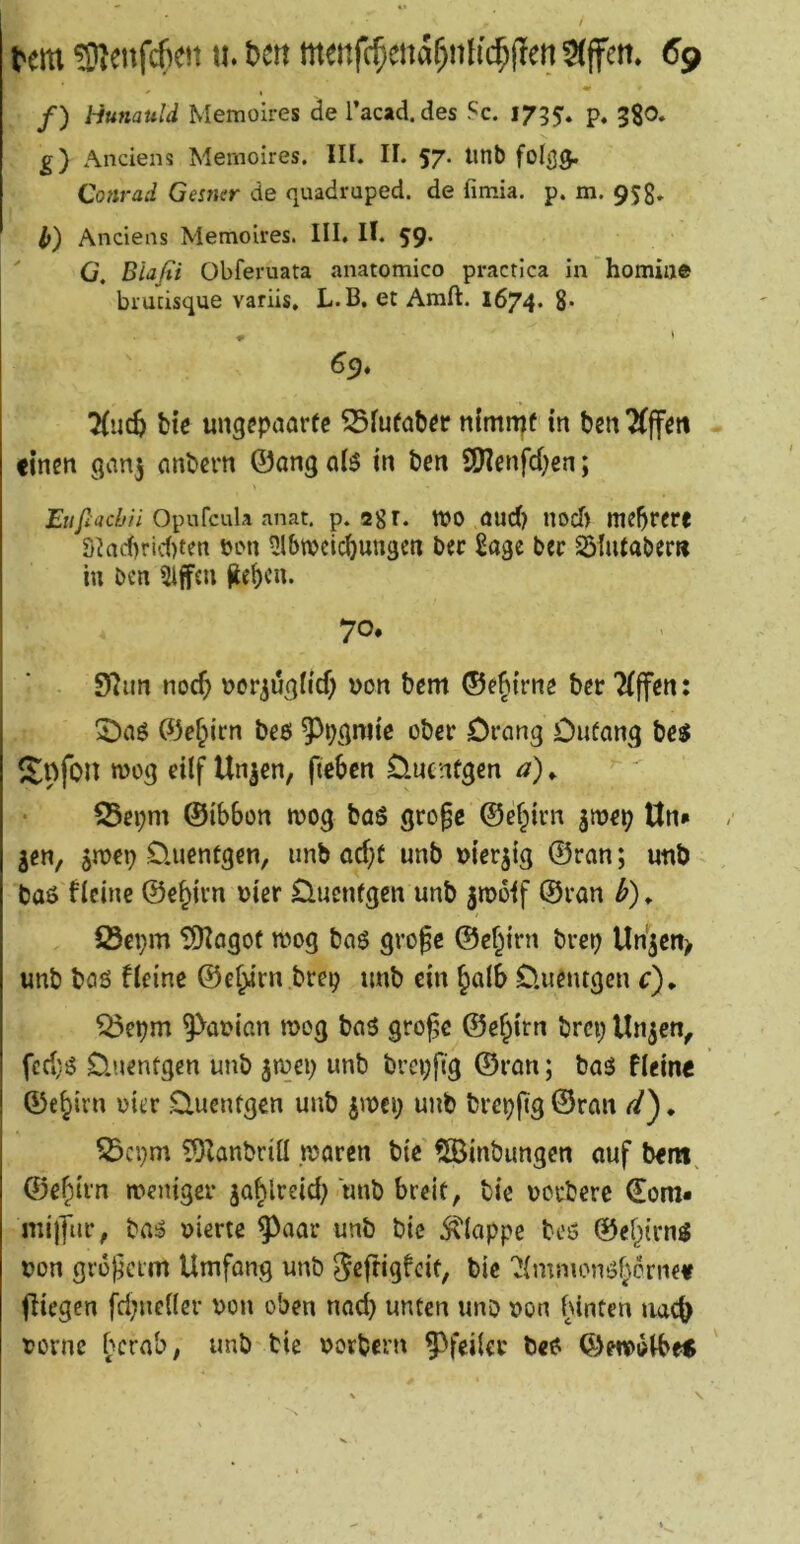 dem Menschen u. den menschenähnlichsten Affen. 69
f) Hunauld Memoires de l'acad. des Sc. 1735. p. 380.
g) Anciens Memoires. III. II. 57. und folgg.
Conrad Gesner de quadruped. de ſimia. p. m. 958.
h) Anciens Memoires. III. II. 59.
G. Blaſii Obſeruata anatomico practica in homine
brutisque variis. L.B. et Amſt. 1674. 8.
69.
Auch die ungepaarte Blutader nimmt in den Affen
einen ganz andern Gang als in den Menschen;
Euſtachii Opuſcula anat. p. 281. wo auch noch mehrere
Nachrichten von Abweichungen der Lage der Blutadern
in den Affen stehen.
70.
Nun noch vorzüglich von dem Gehirne der Affen:
Das Gehirn des Pygmie oder Orang Outang des
Tyson wog eilf Unzen, sieben Quentgen a).
Beym Gibbon wog das große Gehirn zwey Un-
zen, zwey Quentgen, und acht und vierzig Gran; und
das kleine Gehirn vier Quentgen und zwölf Gran b).
Beym Magot wog das große Gehirn drey Unzen,
und das kleine Gehirn drey und ein halb Quentgen c).
Beym Pavian wog das große Gehirn drey Unzen,
sechs Quentgen und zwey und dreyßig Gran; das kleine
Gehirn vier Quentgen und zwey und dreyßig Gran d).
Beym Mandrill waren die Windungen auf dem
Gehirn weniger zahlreich und breit, die vordere Com-
missur, das vierte Paar und die Klappe des Gehirns
von größerm Umfang und Festigkeit, die Ammonshörner
stiegen schneller von oben nach unten und von hinten nach
vorne herab, und die vordern Pfeiler des Gewölbes